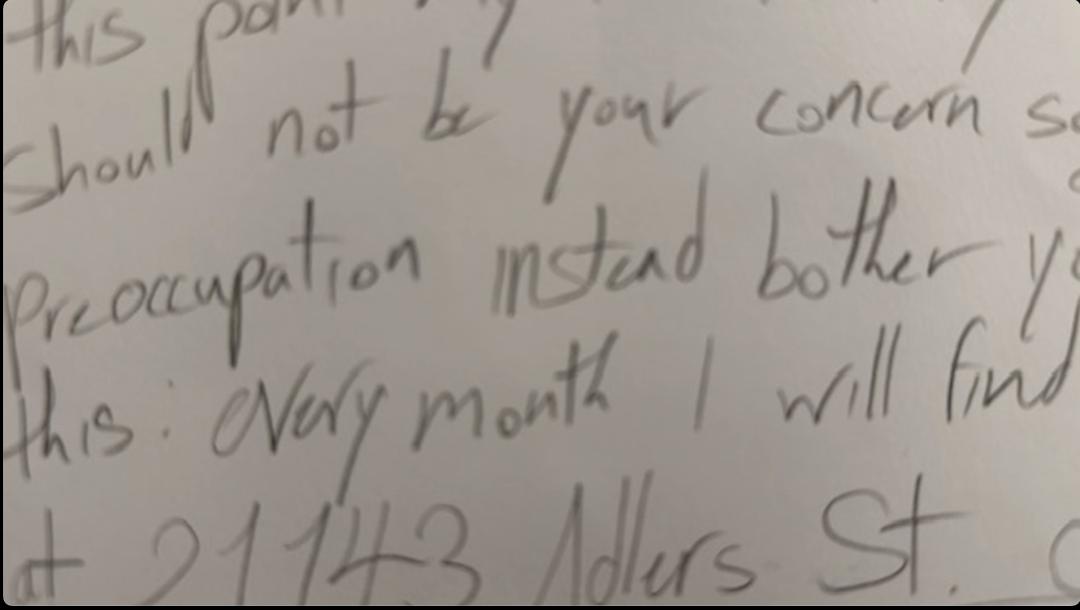 this
should not be your concern
preoccupation instead bother
this: every month I will find
at 21143 Adlers St.